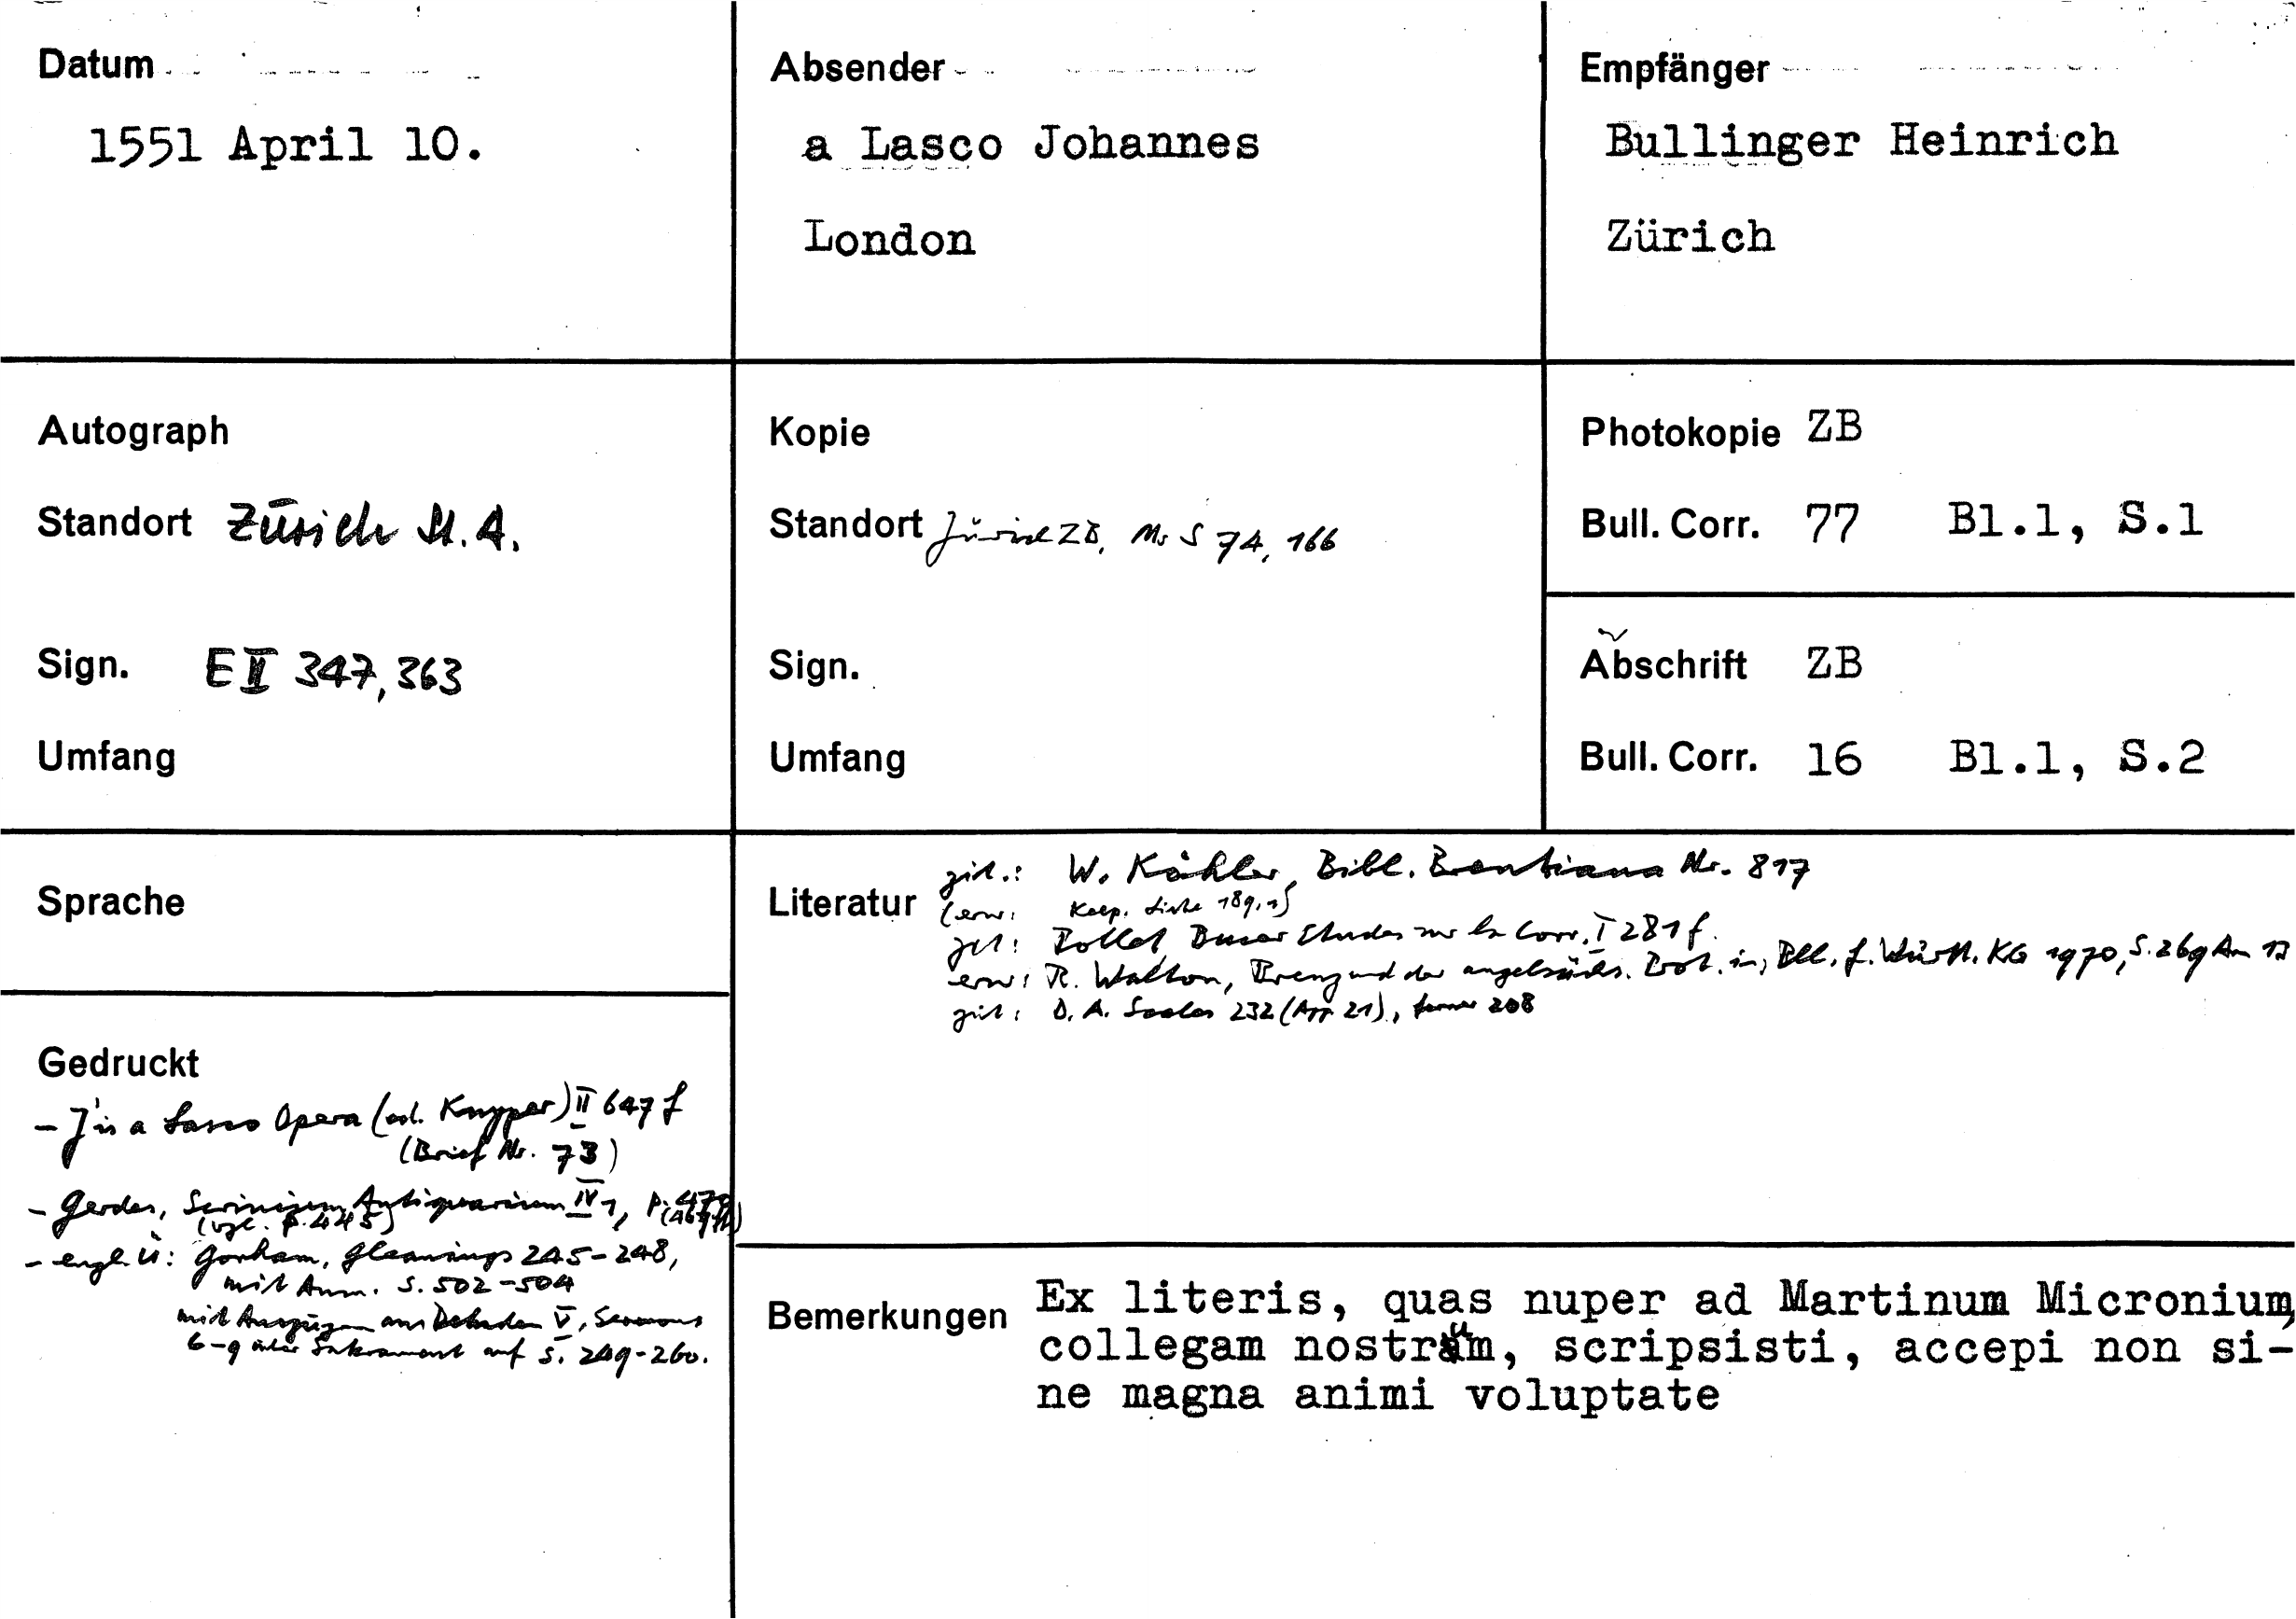 Datum
1551 April 10.
Absender
a Lasco Johannes
London
Empfänger
Bullinger Heinrich
Zürich
Autograph
Standort Zürich St. A.
Sign. E II 347, 363
Umfang
Kopie
Standort Zürich ZB, Ms S 74, 166
Sign.
Umfang
Photokopie ZB
Bull. Corr. 77 Bl.1, S.1
Abschrift ZB
Bull. Corr. 16 Bl.1, S.2
Sprache
Gedruckt
- Jis a Lasco Opera (ed. Kuyper) II 647 f
(Brief Nr. 73)
- Gerdes, Scrinium Antiquarium IV 1, p. 470
(vgl. p. 445)
- engl. Ü: Gorham, Gleanings 245-248,
mit Anm. S. 502-504
mit Auszügen aus Dekaden V, Sermons
6-9 über Sakrament auf S. 249-260.
Literatur zit.: W. Köhler, Bibl. Brentiana Nr. 817
(erw: Liste 189,1)
zit: Pollet Bucer Etudes sur la Corr. I 281 f.
erw: R. Walton, Brenz und der angelsächs. Prot. in, Bll. f. Württ. KG 1970, S. 269 Am 13
zit: D. A. 232 (App 21), ferner 208
Bemerkungen Ex literis, quas nuper ad Martinum Micronium,
collegam nostrum, scripsisti, accepi non si-
ne magna animi voluptate